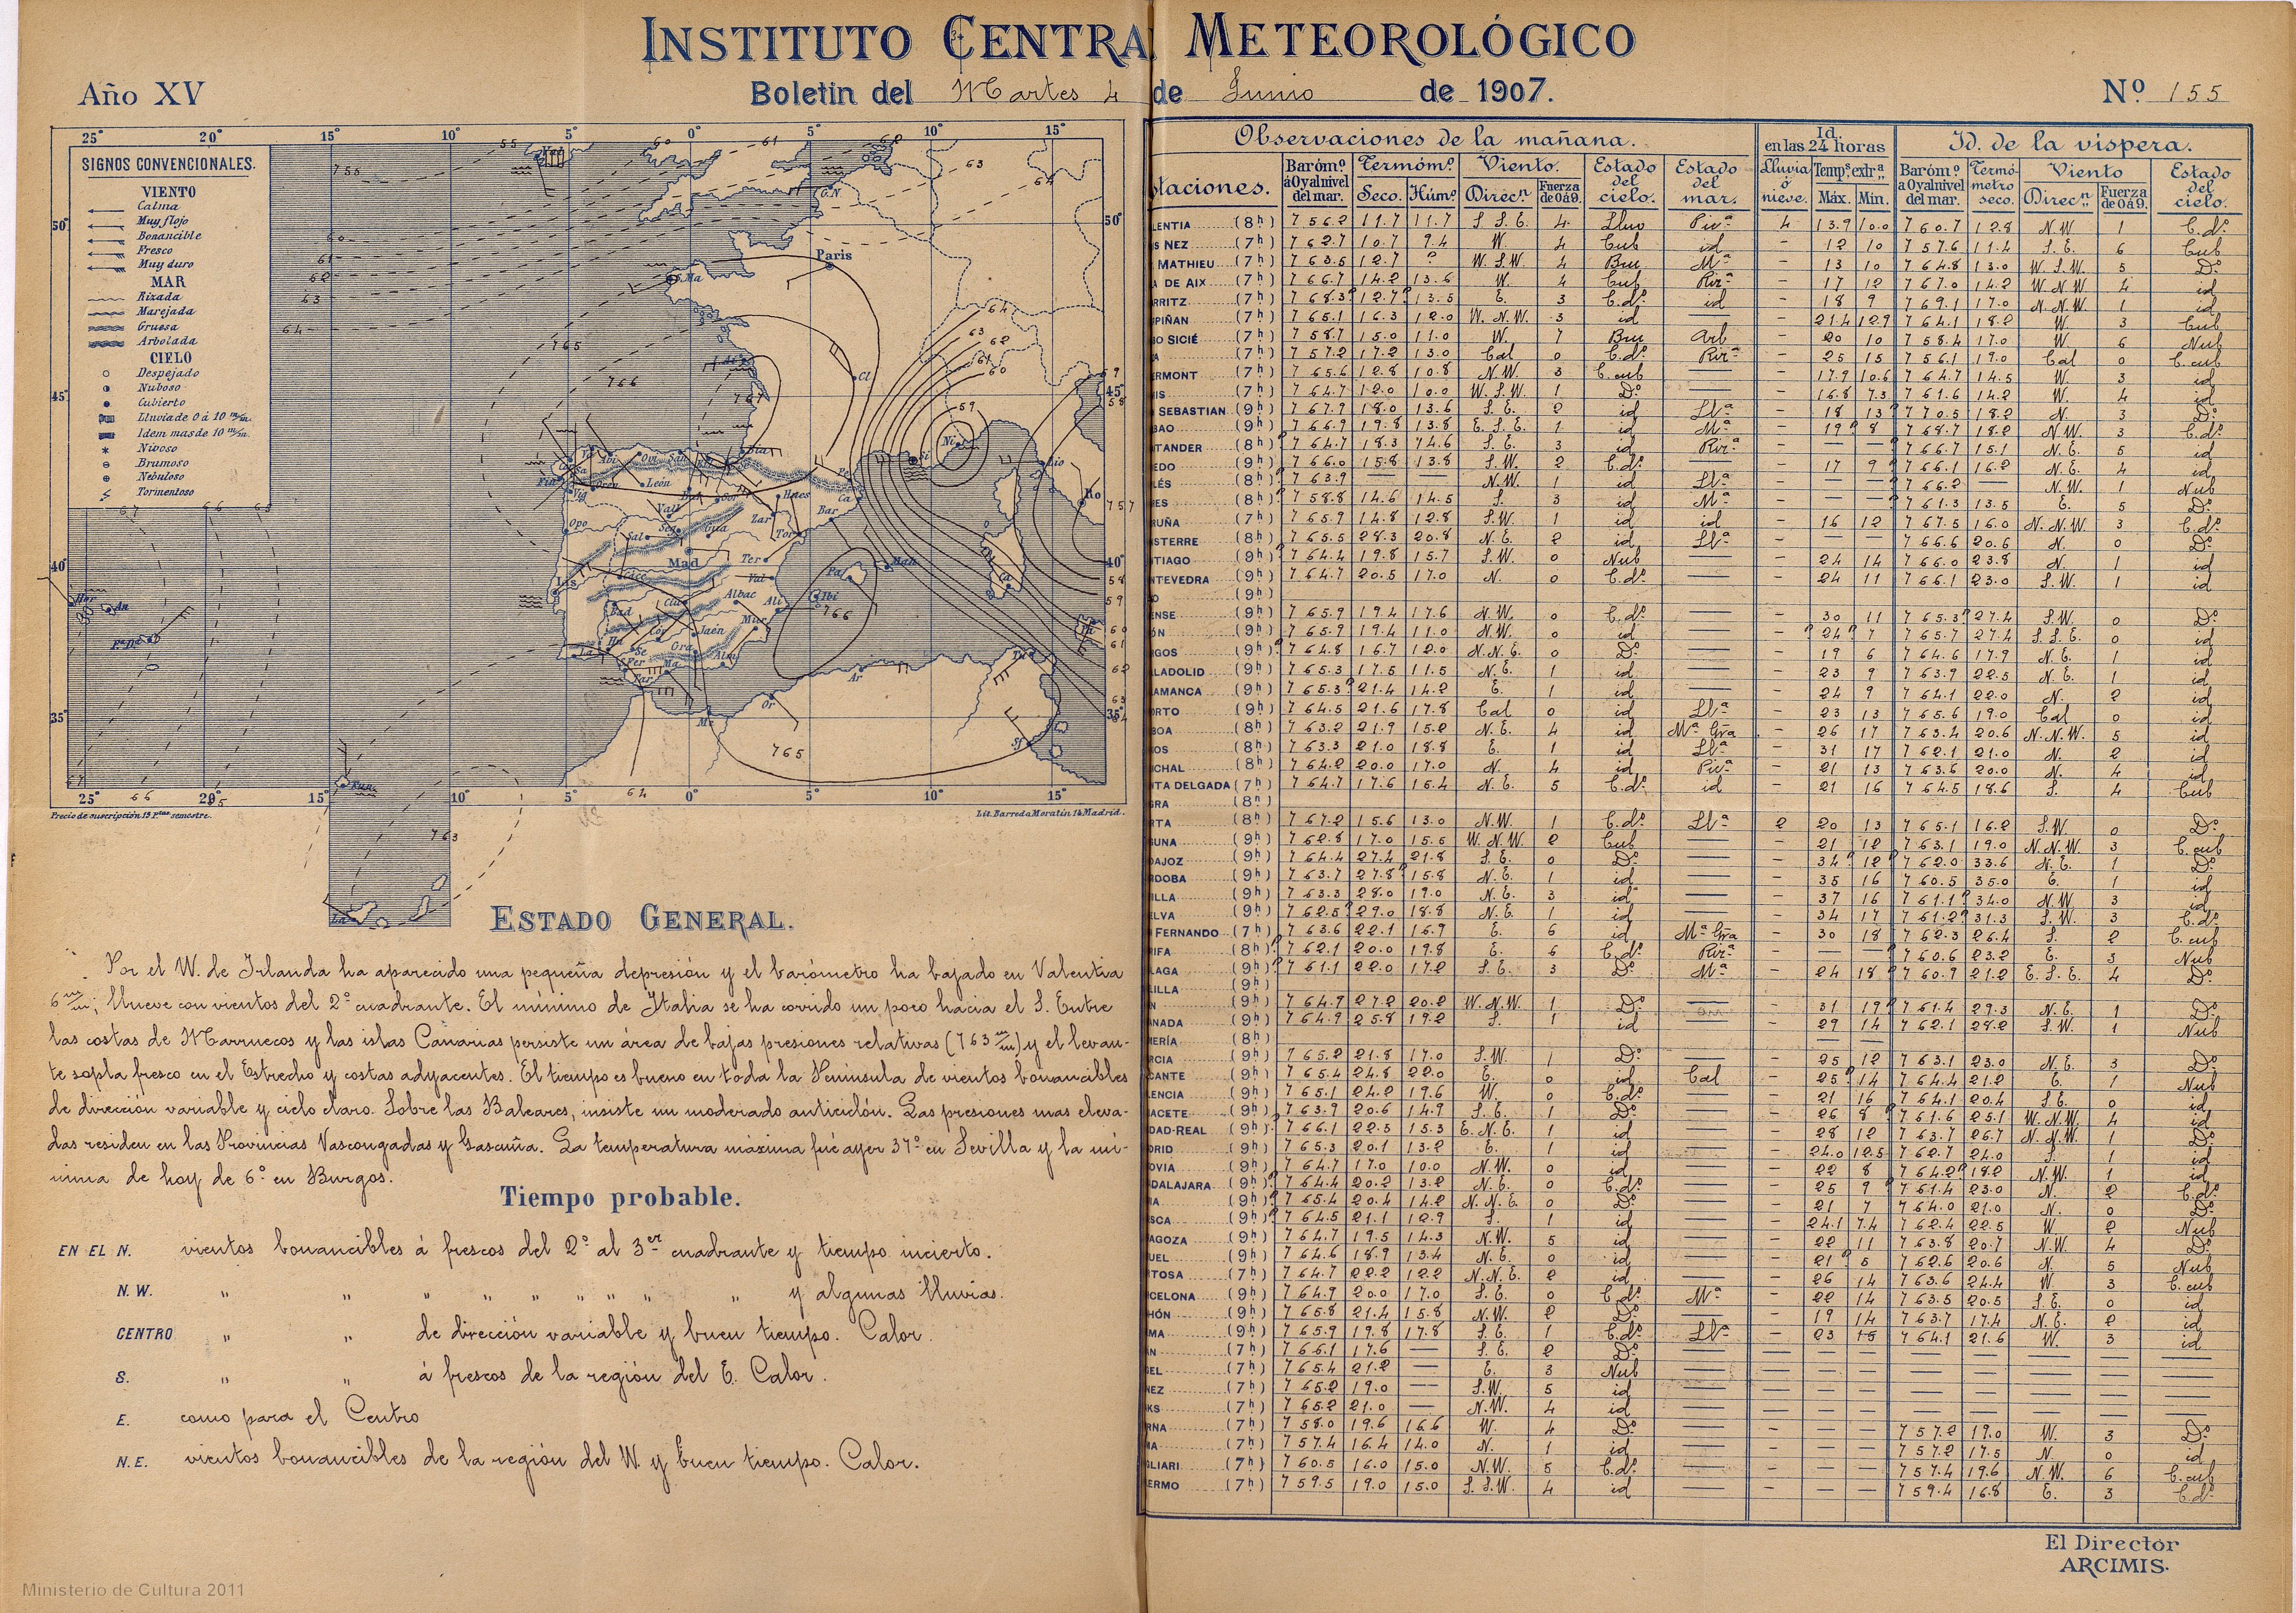 INSTITUTO CENTRA METEOROLÓGICO
Año XV
Boletin del Martes 4 de Junio de 1907.
Nº 155
SIGNOS CONVENCIONALES.
VIENTO
Calma
Muy flojo
Bonancible
Fresco
Muy duro
MAR
Rizada
Marejada
Gruesa
Arbolada
CIELO
Despejado
Nuboso
Cubierto
Lluvia de 0 á 10 m/m.
Idem mas de 10 m/m.
Nivoso
Brumoso
Nebuloso
Tormentoso
Paris
Mad
Precio de suscripción 15 Ptas semestre.
Lit. Barreda Moratin 14 Madrid.
ESTADO GENERAL.
Por el W. de Irlanda ha aparecido una pequeña depresión y el barómetro ha bajado en Valentia
6 m/m; llueve con vientos del 2º cuadrante. El mínimo de Italia se ha corrido un poco hacia el S. Entre
las costas de Marruecos y las islas Canarias persiste un área de bajas presiones relativas (763 m/m) y el levan-
te sopla fresco en el Estrecho y costas adyacentes. El tiempo es bueno en toda la Península de vientos bonancibles
de dirección variable y cielo claro. Sobre las Baleares, insiste un moderado anticiclón. Las presiones mas eleva-
das residen en las Provincias Vascongadas y Gascuña. La temperatura máxima fué ayer 37º en Sevilla y la mí-
nima de hoy de 6º en Burgos.
Tiempo probable.
EN EL N. vientos bonancibles á frescos del 2º al 3er cuadrante y tiempo incierto.
N.W. " " " " " " " " " y algunas lluvias.
CENTRO " " de dirección variable y buen tiempo. Calor.
S. " " á frescos de la región del E. Calor.
E. como para el Centro
N.E. vientos bonancibles de la región del W. y buen tiempo. Calor.
Observaciones de la mañana.
Id. en las 24 horas
Id. de la víspera.
taciones.
Baróm.º á 0 y al nivel del mar.
Termómº.
Seco. Húmº.
Viento.
Direcn. Fuerza de 0 á 9.
Estado del cielo.
Estado del mar.
Lluvia ó nieve.
Temps. extrs.
Máx. Mín.
Baróm.º á 0 y al nivel del mar.
Termómetro seco.
Viento
Direcn. Fuerza de 0 á 9.
Estado del cielo.
LENTIA (8h) 756.2 11.7 11.7 S.S.E. 4 Lluv Pica 4 13.9 10.0 760.7 12.8 N.W. 1 C.dº
S NEZ (7h) 762.7 10.7 9.4 W. 4 Cub id – 12 10 757.6 11.4 S.E. 6 Cub
MATHIEU (7h) 763.5 12.7 ? W.S.W. 4 Bru Ma – 13 10 764.8 13.0 W.S.W. 5 Dº
DE AIX (7h) 766.7 14.2 13.6 W. 4 Cub – 17 12 767.0 14.2 W.N.W. 4 id
RRITZ (7h) 768.3 12.7 13.5 E. 3 C.dº id – 18 9 769.1 17.0 N.N.W. 1 id
PIÑAN (7h) 765.1 16.3 12.0 W.N.W. 3 id – 21.4 12.9 764.1 18.2 W. 3 Cub
O SICIÉ (7h) 758.7 15.0 11.0 W. 7 Bru Arb – 20 10 758.4 17.0 W. 6 Nub
(7h) 757.2 17.2 13.0 Cal 0 C.dº – 25 15 756.1 19.0 Cal 0 C.cub
ERMONT (7h) 765.6 12.8 10.8 N.W. 3 C.cub – 17.9 10.6 764.7 14.5 W. 3 id
IS (7h) 764.7 12.0 10.0 W.S.W. 1 Dº – 16.8 7.3 761.6 14.2 W. 4 id
SEBASTIAN (9h) 767.7 18.0 13.6 S.E. 2 id Lla – 18 13 770.5 18.2 N. 3 Dº
BAO (9h) 766.9 19.8 13.8 E.S.E. 1 id Ma – 19 8 768.7 18.2 N.W. 3 C.dº
TANDER (8h) 764.7 18.3 S.E. 3 id 766.7 15.1 N.E. 5 id
EDO (9h) 766.0 15.8 13.8 S.W. 2 C.dº – 17 9 766.1 16.2 N.E. 4 id
LÉS (8h) 763.9 N.W. 1 id Lla 766.2 N.W. 1 Nub
ES (8h) 758.8 14.6 14.5 S. 3 id Ma 761.3 13.5 E. 5 Dº
RUÑA (7h) 765.9 14.8 12.8 S.W. 1 id id – 16 12 767.5 16.0 N.N.W. 3 C.dº
ISTERRE (8h) 765.5 28.3 20.8 N.E. 2 id Lla 766.6 20.6 N. 0 Dº
TIAGO (9h) 764.4 19.8 15.7 S.W. 0 Nub – 24 14 766.0 23.8 N. 1 id
NTEVEDRA (9h) 764.7 20.5 17.0 N. 0 C.dº – 24 11 766.1 23.0 S.W. 1 id
O (9h)
ENSE (9h) 765.9 19.4 17.6 N.W. 0 C.dº – 30 11 765.3 27.4 S.W. 0 Dº
ÓN (9h) 765.9 19.4 11.0 N.W. 0 id – 24 7 765.7 27.4 S.S.E. 0 id
RGOS (9h) 764.8 16.7 12.0 N.N.E. 0 Dº – 19 6 764.6 17.9 N.E. 1 id
LADOLID (9h) 765.3 17.5 11.5 N.E. 1 id – 23 9 763.9 22.5 N.E. 1 id
AMANCA (9h) 765.3 21.4 14.2 E. 1 id – 24 9 764.1 22.0 N. 2 id
ORTO (9h) 764.5 21.6 17.8 Cal 0 id Lla – 23 13 765.6 19.0 Cal 0 id
BOA (8h) 763.2 21.9 15.2 N.E. 4 id Ma Gra – 26 17 763.4 20.6 N.N.W. 5 id
OS (8h) 763.3 21.0 18.8 E. 1 id Lla – 31 17 762.1 21.0 N. 2 id
CHAL (8h) 764.2 20.0 17.0 N. 4 id Pica – 21 13 763.6 20.0 N. 4 id
TA DELGADA (7h) 764.7 17.6 15.4 N.E. 5 C.dº id – 21 16 764.5 18.6 S. 4 Cub
GRA (8h)
RTA (8h) 767.2 15.6 13.0 N.W. 1 C.dº Lla 2 20 13 765.1 16.2 S.W. 0 Dº
UNA (9h) 762.8 17.0 15.5 W.N.W. 2 Cub – 21 12 763.1 19.0 N.N.W. 3 C.cub
DAJOZ (9h) 764.4 27.4 21.8 S.E. 0 Dº – 34 12 762.0 33.6 N.E. 1 Dº
RDOBA (9h) 763.7 27.8 15.8 N.E. 1 id – 35 16 760.5 35.0 E. 1 id
ILLA (9h) 763.3 28.0 19.0 N.E. 3 id – 37 16 761.1 34.0 N.W. 3 id
ELVA (9h) 762.5 29.0 18.8 N.E. 1 id – 34 17 761.2 31.3 S.W. 3 C.dº
FERNANDO (7h) 763.6 22.1 16.9 E. 6 id Ma Gra – 30 18 762.3 26.4 S. 2 C.cub
RIFA (8h) 762.1 20.0 19.8 E. 6 C.dº 760.6 23.2 E. 3 Nub
LAGA (9h) 761.1 22.0 17.2 S.E. 3 Dº Ma – 24 18 760.9 21.2 E.S.E. 4 Dº
LILLA (9h)
N (9h) 764.9 27.2 20.2 W.N.W. 1 Dº – 31 19 761.4 29.3 N.E. 1 Dº
NADA (9h) 764.9 25.8 19.2 S. 1 id – 29 14 762.1 28.2 S.W. 1 Nub
MERÍA (8h)
RCIA (9h) 765.2 21.8 17.0 S.W. 1 Dº – 25 12 763.1 23.0 N.E. 3 Dº
CANTE (9h) 765.4 24.8 22.0 E. 0 id Cal – 25 14 764.4 21.2 E. 1 Nub
LENCIA (9h) 765.1 24.2 19.6 W. 0 C.dº – 21 16 764.1 20.4 S.E. 0 id
ACETE (9h) 763.9 20.6 14.9 S.E. 1 Dº – 26 8 761.6 25.1 W.N.W. 4 id
DAD-REAL (9h) 766.1 22.5 15.3 E.N.E. 1 id – 28 12 763.7 26.7 N.N.W. 1 Dº
DRID (9h) 765.3 20.1 13.2 E. 1 id – 24.0 12.5 762.7 24.0 S. 1 id
OVIA (9h) 764.7 17.0 10.0 N.W. 0 id – 22 8 764.2 18.2 N.W. 1 id
DALAJARA (9h) 764.4 20.2 13.2 N.E. 0 C.dº – 25 9 761.4 23.0 N. 2 C.dº
IA (9h) 765.4 20.4 14.2 N.N.E. 0 Dº – 21 7 764.0 21.0 N. 0 Dº
SCA (9h) 764.5 21.1 12.9 S. 1 id – 24.1 7.4 762.4 22.5 W. 2 Nub
AGOZA (9h) 764.7 19.5 14.3 N.W. 5 id – 22 11 763.8 20.7 N.W. 4 Dº
UEL (9h) 764.6 18.9 13.4 N.E. 0 id – 21 5 762.6 20.6 N. 5 Nub
TOSA (7h) 764.7 22.2 12.2 N.N.E. 2 id – 26 14 763.6 24.4 W. 3 C.cub
CELONA (9h) 764.9 20.0 17.0 S.E. 0 C.dº Ma – 22 14 763.5 20.5 S.E. 0 id
HÓN (9h) 765.8 21.4 15.8 N.W. 2 Dº – 19 14 763.7 17.4 N.E. 2 id
MA (9h) 765.9 19.8 17.8 S.E. 1 C.dº Lla – 23 15 764.1 21.6 W. 3 id
N (7h) 766.1 17.6 — S.E. 2 Dº
EL (7h) 765.4 21.2 — E. 3 Nub
NEZ (7h) 765.2 19.0 — S.W. 5 id
KS (7h) 765.2 21.0 — N.W. 4 id
RNA (7h) 758.0 19.6 16.6 W. 4 Dº – – – 757.2 19.0 W. 3 Dº
MA (7h) 757.4 16.4 14.0 N. 1 id – – – 757.2 17.5 N. 0 id
GLIARI (7h) 760.5 16.0 15.0 N.W. 5 C.dº – – – 757.4 19.6 N.W. 6 C.cub
ERMO (7h) 759.5 19.0 15.0 S.S.W. 4 id – – – 759.4 16.8 E. 3 C.dº
El Director
ARCIMIS.
Ministerio de Cultura 2011